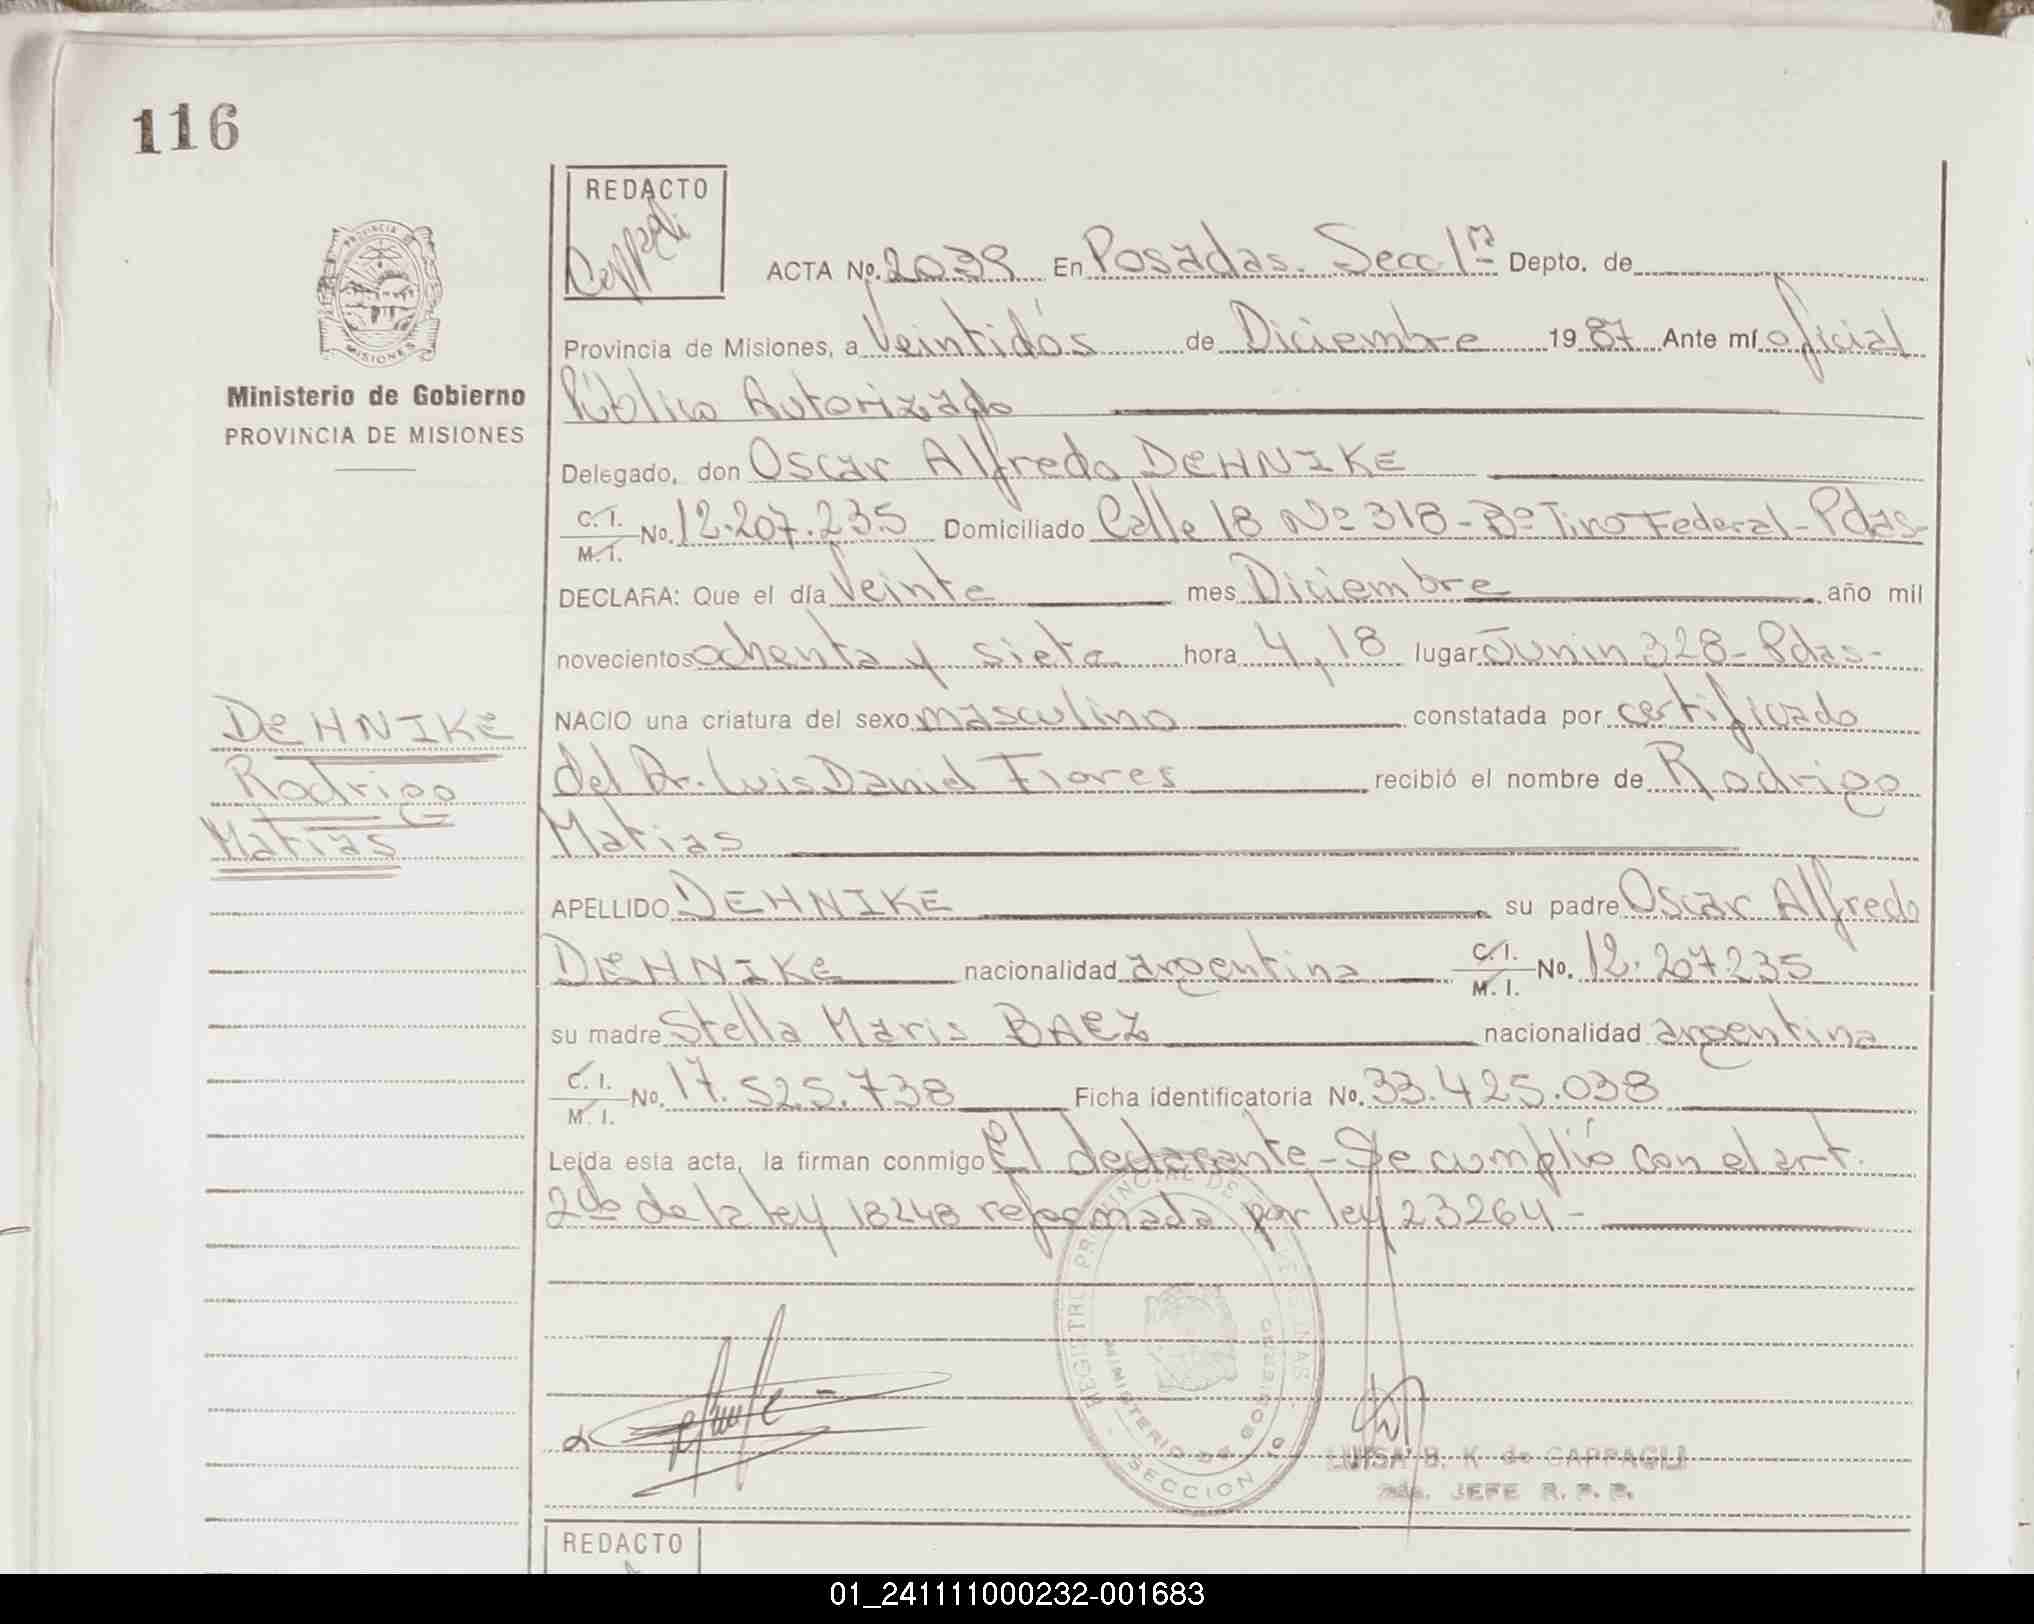 116
REDACTO
PROVINCIA DE
MISIONES
Ministerio de Gobierno
PROVINCIA DE MISIONES
ACTA No. 2039 En Posadas. Secc 1ª Depto. de
Provincia de Misiones, a Veintidós de Diciembre 1987 Ante mí oficial
Público Autorizado
Delegado, don Oscar Alfredo DEHNIKE
C.I. M.I. No. 12.207.235 Domiciliado Calle 18 Nº 318 - Bº Tiro Federal - Pdas -
DECLARA: Que el día Veinte mes Diciembre año mil
novecientos ochenta y siete hora 4,18 lugar Junin 328 - Pdas -
NACIO una criatura del sexo masculino constatada por certificado
del Dr. Luis Daniel Flores recibió el nombre de Rodrigo
Matias
APELLIDO DEHNIKE su padre Oscar Alfredo
DEHNIKE nacionalidad argentina C.I. M.I. No. 12.207.235
su madre Stella Maris BAEZ nacionalidad argentina
C.I. M.I. No. 17.525.738 Ficha identificatoria No. 33.425.038
Leída esta acta, la firman conmigo El declarante - Se cumplió con el art.
2do de la ley 18248 reformada por ley 23264 -
DEHNIKE
Rodrigo
Matias
REGISTRO PROVINCIAL DE
MINISTERIO DE GOBIERNO
SECCION
LUISA B. K. de CAPPAGLI
JEFE R. P. P.
REDACTO
01_241111000232-001683